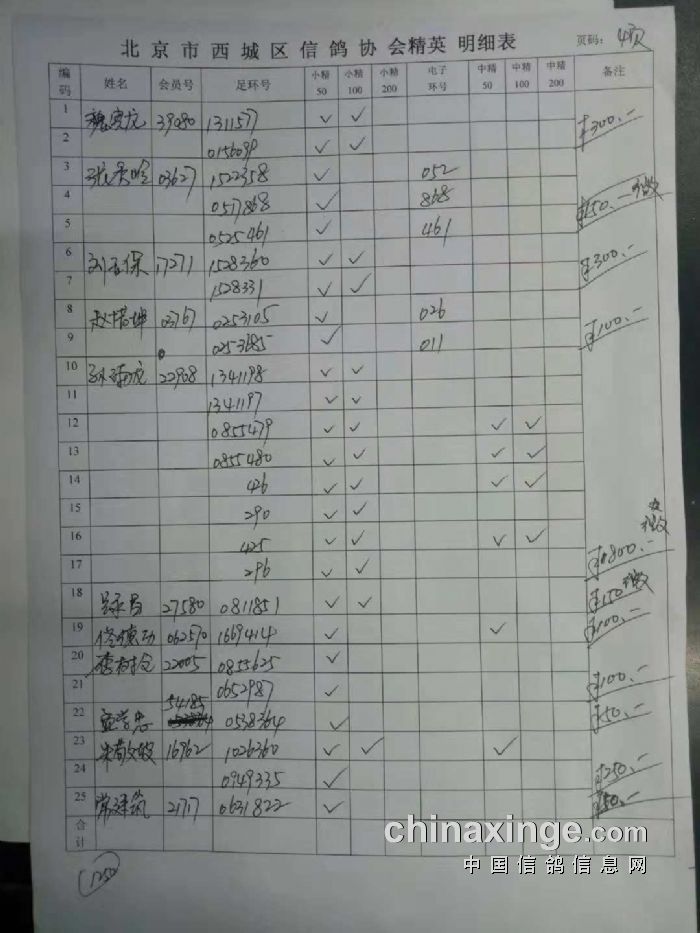 北京市西城区信鸽协会精英 明细表 页码: 4页
编码 姓名 会员号 足环号 小精50 小精100 小精200 电子环号 中精50 中精100 中精200 备注
1 39080 1311577 ✓ ✓
2 0156099 ✓ ✓ ¥300.-
3 03627 1522358 ✓ 052
4 0517868 ✓ 868 ¥150.-
5 0525461 ✓ 461
6 17271 1528360 ✓ ✓ ¥300.-
7 1528331 ✓ ✓
8 03767 0253105 ✓ 026 ¥100.-
9 0253685 ✓ 011
10 22908 1341198 ✓ ✓
11 1341197 ✓ ✓
12 0855479 ✓ ✓ ✓ ✓
13 0855480 ✓ ✓ ✓ ✓
14 426 ✓ ✓ ✓ ✓
15 290 ✓ ✓
16 425 ✓ ✓ ✓ ✓
17 296 ✓ ✓
18 27580 0811851 ✓ ✓ ¥150
19 062570 1669414 ✓ ✓ ¥100.-
20 22005 0855625 ✓
21 0652987 ✓ ¥100.-
22 54185 0538364 ✓ ¥50.-
23 16962 1026360 ✓ ✓ ✓
24 0949335 ✓ ¥250.-
25 常建筑 21717 0631822 ✓ ¥50.-
合计
1250
chinaxinge.com
中国信鸽信息网